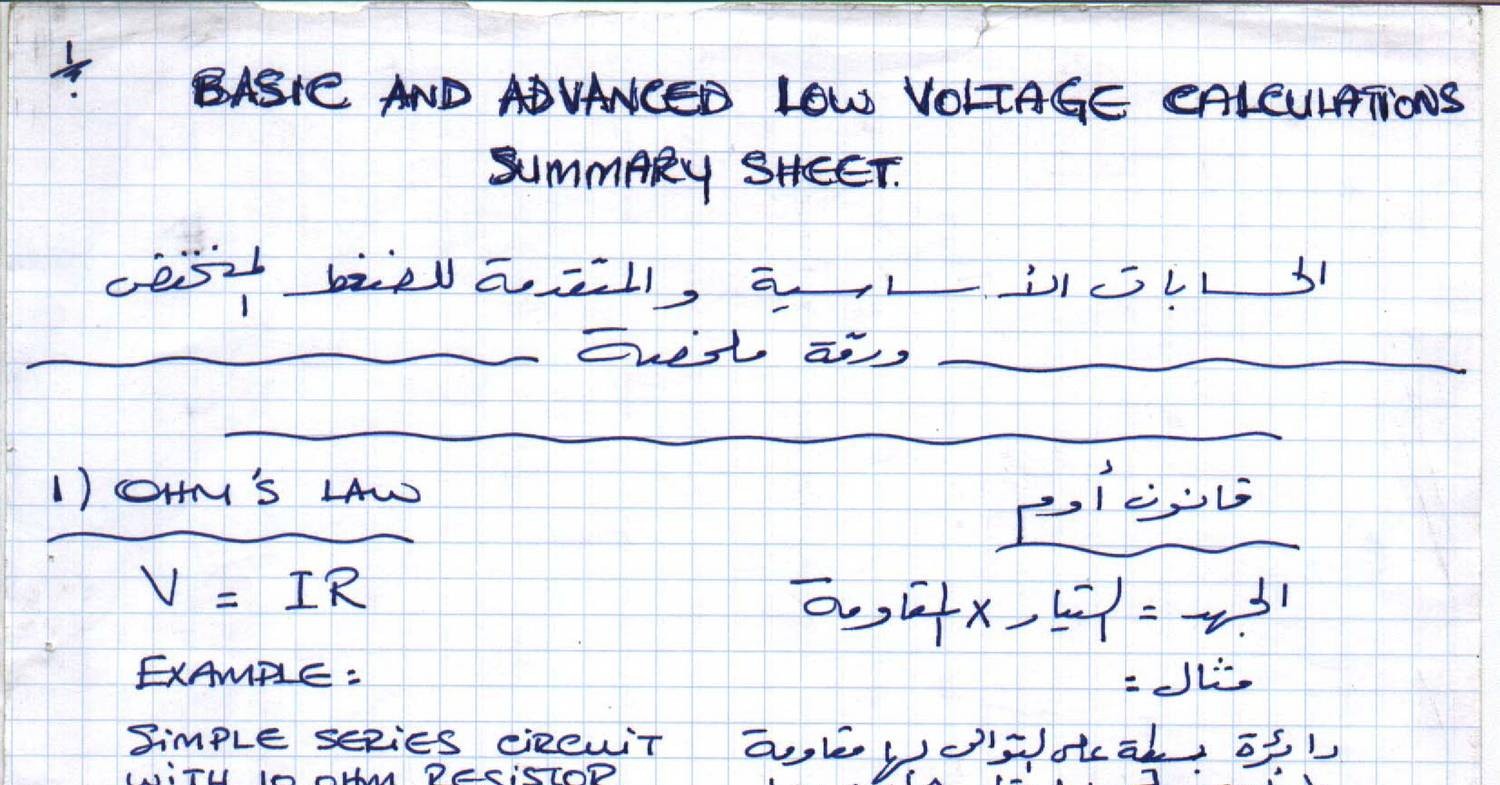 1/.
BASIC AND ADVANCED LOW VOLTAGE CALCULATIONS
SUMMARY SHEET.
الحسابات الأساسية والمتقدمة للضغط المنخفض
ورقة ملخصة
1) OHM'S LAW
قانون أوم
V = IR
الجهد = التيار x المقاومة
EXAMPLE:
مثال:
SIMPLE SERIES CIRCUIT
دائرة بسيطة على التوالى لها مقاومة
WITH 10 OHM RESISTOR